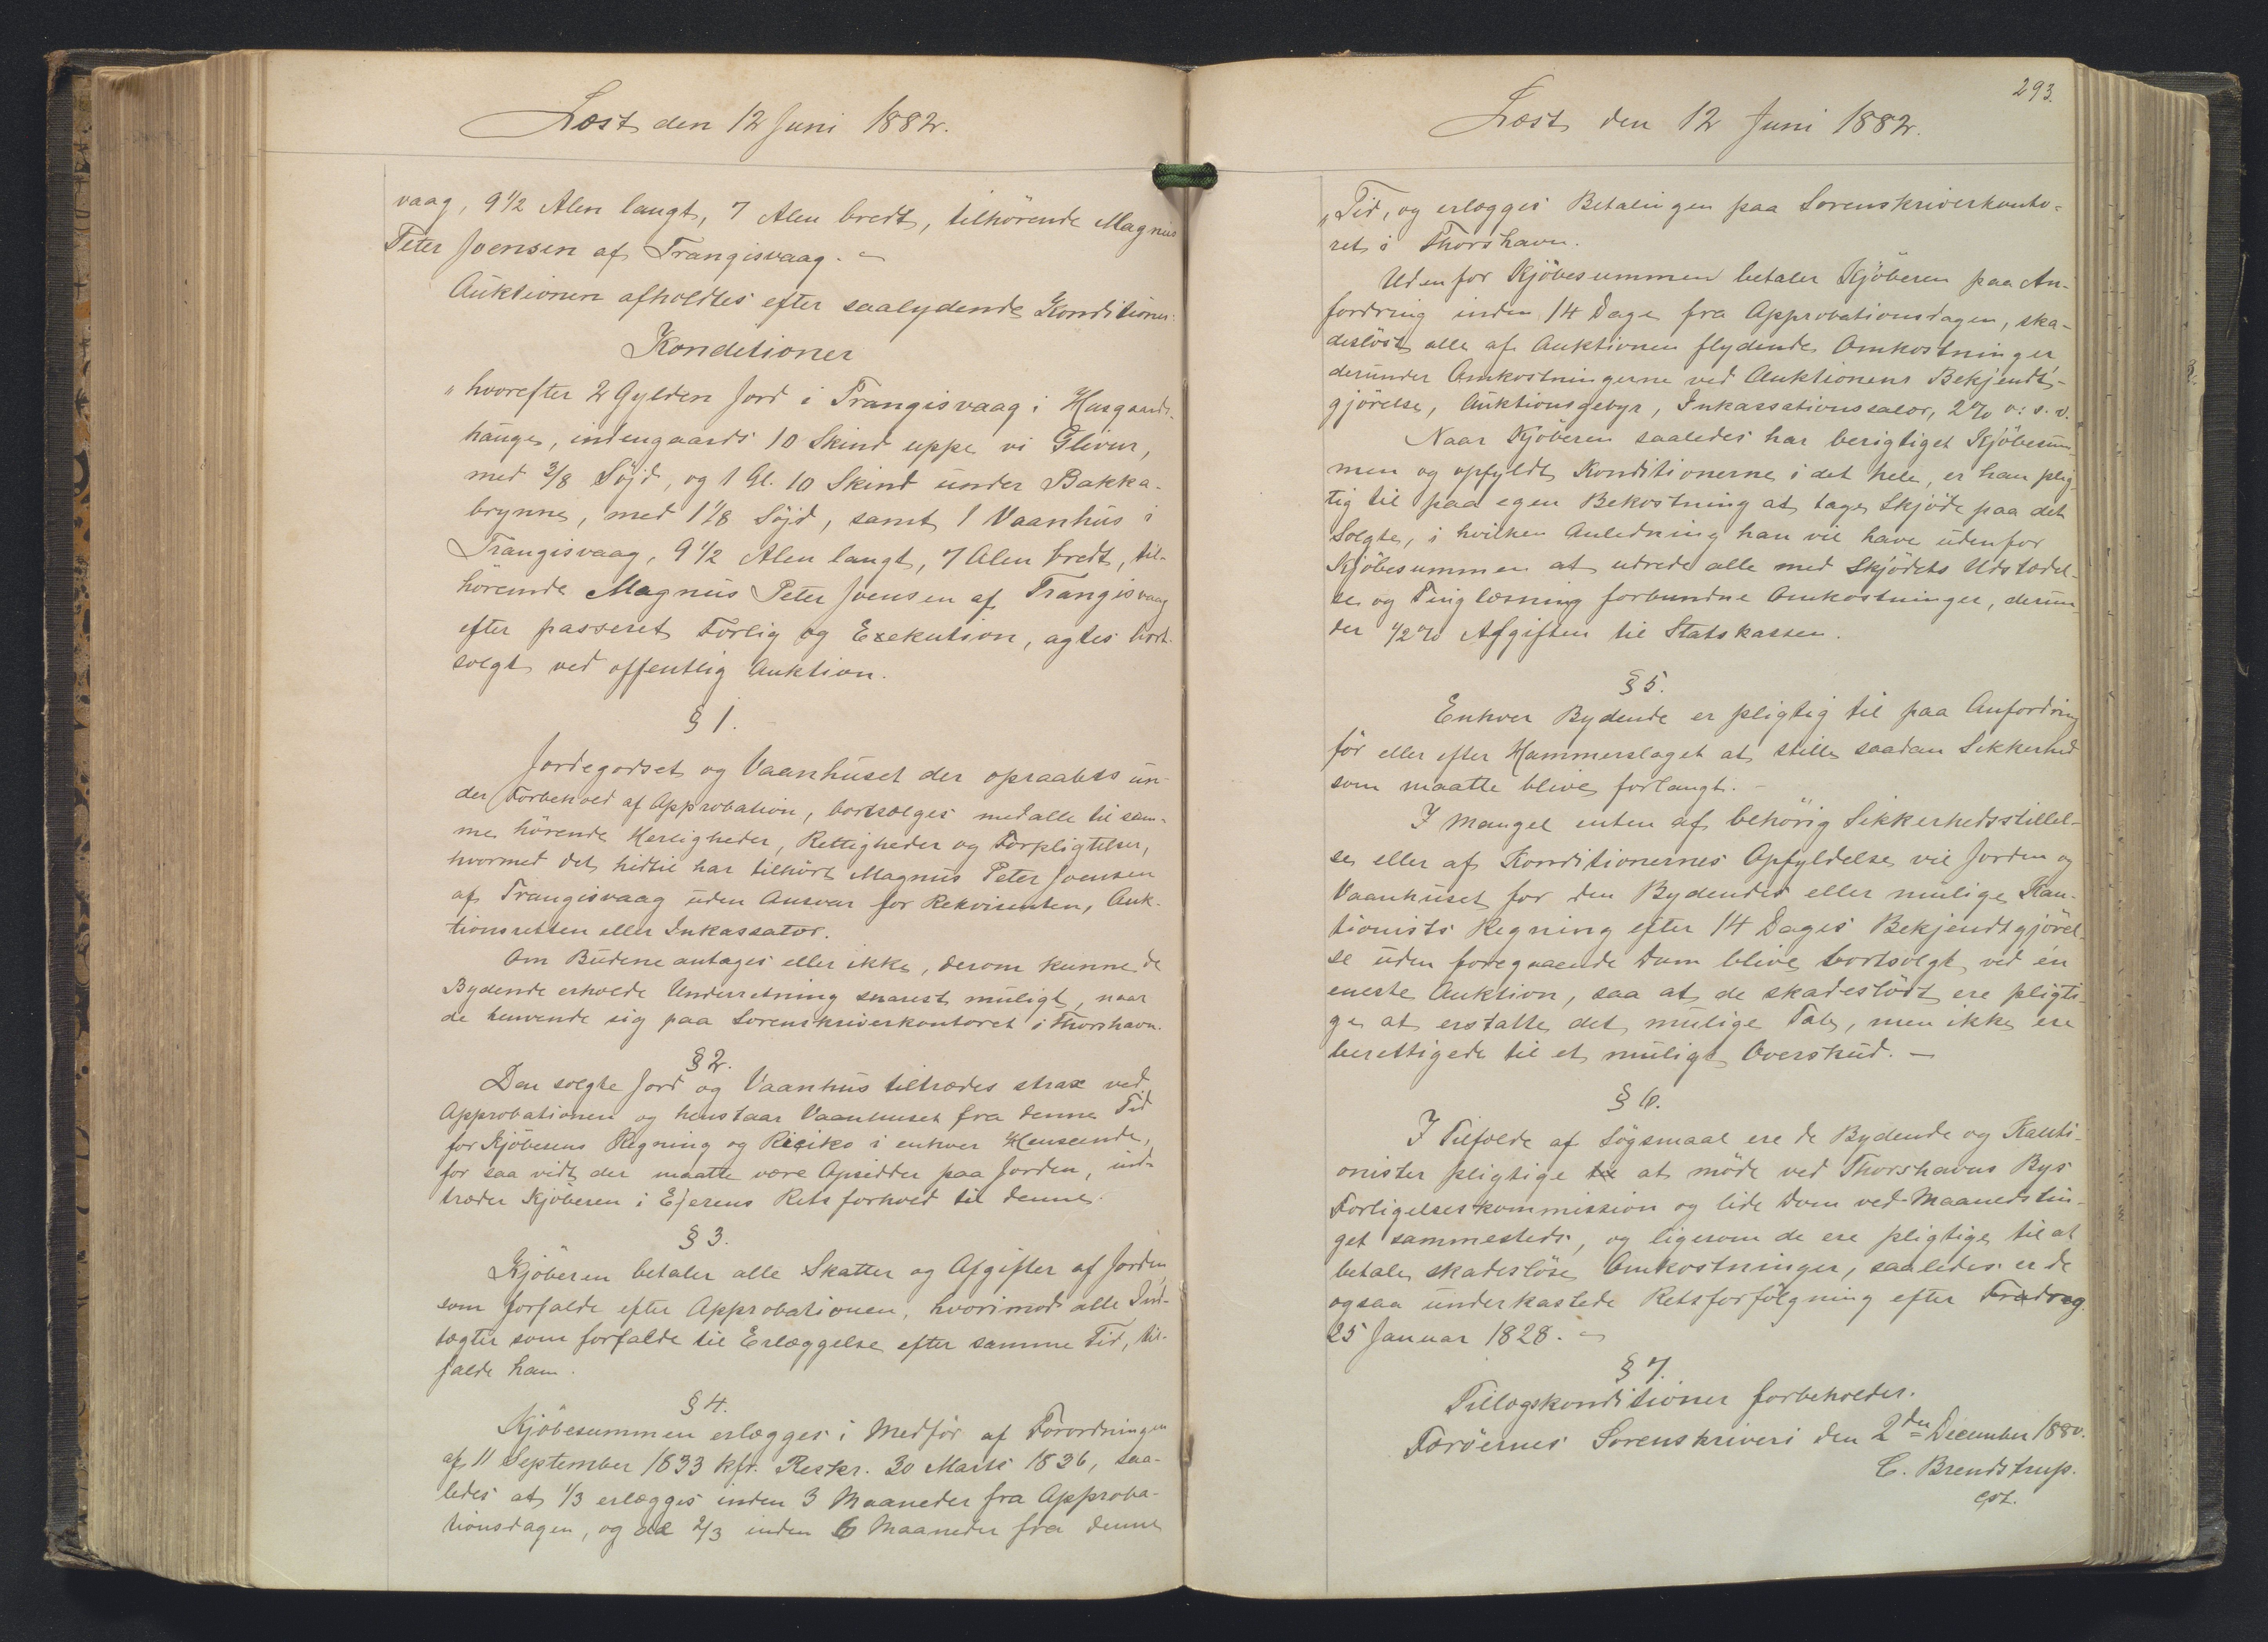 Læst den 12 Juni 1882.
vaag, 9 1/2 Alen langt, 7 Alen bredt, tilhörende Magnus
Peter Joensen af Trangisvaag. -
Auktionen afholdtes efter saalydende Konditioner:
Konditioner
"hvorefter 2 Gylden Jord i Trangisvaag i Husgaards-
hauge, indengaards 10 Skind uppe vi Glivur,
med 3/8 Söjd, og 1 Gl. 10 Skind under Bakka-
brynne, med 1 1/8 Söjd, samt 1 Vaanhus i
Trangisvaag, 9 1/2 Alen langt, 7 Alen bredt, til-
hörende Magnus Peter Joensen af Trangisvaag
efter passeret Forlig og Exekution, agtes bort-
solgt ved offentlig Auktion.
§ 1.
Jordegodset og Vaanhuset der opraabes un-
der Forbehold af Approbation, bortsælges med alle til sam-
me hörende Herligheder, Rettigheder og Forpligtelser,
hvormed det hidtil har tilhört Magnus Peter Joensen
af Trangisvaag uden Ansvar for Rekvirenten, Auk-
tionsretten eller Inkassator.
Om Budene antages eller ikke, derom kunne de
Bydende erholde Underretning snarest muligt, naar
de henvende sig paa Sorenskriverkontoret i Thorshavn.
§ 2.
Den solgte Jord og Vaanhus tiltrædes strax ved
Approbationen og henstaar Vaanhuset fra denne Tid
for Kjöberens Regning og Riciko i enhver Henseende,
for saa vidt der maatte være Opsidder paa Jorden, ind-
træder Kjöberen i Ejerens Retsforhold til denne.
§ 3.
Kjöberen betaler alle Skatter og Afgifter af Jorden
som forfalde efter Approbationen, hvorimod alle Ind-
tægter som forfalde til Erlæggelse efter samme Tid, til-
falde ham.
§ 4.
Kjöbesummen erlægges i Medför af Forordningen
af 11 September 1833 kfr. Reskr. 30 Marts 1836, saa-
ledes at 1/3 erlægges inden 3 Maaneder fra Approba-
tionsdagen, og de 2/3 inden 6 Maaneder fra denne
293.
Læst den 12 Juni 1882.
"Tid, og erlægges Betalingen paa Sorenskriverkonto-
ret i Thorshavn.
Udenfor Kjöbesummen betaler Kjöberen paa An-
fordring inden 14 Dage fra Approbationsdagen, ska-
deslöst alle af Auktionen flydende Omkostninger
derunder Omkostningerne ved Auktionens Bekjendt-
gjörelse, Auktionsgebyr, Inkassationssalær, 2% o: s. v.
Naar Kjöberen saaledes har berigtiget Kjöbesum-
men og opfyldt Konditionerne i det hele, er han plig-
tig til paa egen Bekostning at tage Skjöde paa det
Solgte, i hvilken Anledning han vil have udenfor
Kjöbesummen at udrede alle med Skjödets Udstædel-
se og Tinglæsning forbundne Omkostninger, derun-
der 1/2% Afgiften til Statskassen.
§ 5.
Enhver Bydende er pligtig til paa Anfordring
för eller efter Hammerslaget at stille saadan Sikkerhed
som maatte blive forlangt. -
I Mangel enten af behörig Sikkerhedsstillel-
se eller af Konditionernes Opfyldelse vil Jorden og
Vaanhuset for den Bydendes eller mulige Kau-
tionists Regning efter 14 Dages Bekjendtgjörel-
se uden foregaaende Dom blive bortsolgt ved én
eneste Auktion, saa at de skadeslöst ere pligti-
ge at erstatte det mulige Tab, men ikke ere
berettigede til et muligt Overskud. -
§ 6.
I Tilfælde af Sögsmaal ere de Bydende og Kauti-
onister pligtige til at möde ved Thorshavns Bys
Forligelseskommission og lide Dom ved Maanedstin-
get sammesteds, og ligesom de ere pligtige til at
betale skadeslöse Omkostninger, saaledes er de
ogsaa underkastede Retsforfölgning efter Frdng.
25 Januar 1828. -
§ 7.
Tillægskonditioner forbeholdes.
Færöernes Sorenskriveri den 2den December 1880.
C. Brendstrup.
cst.